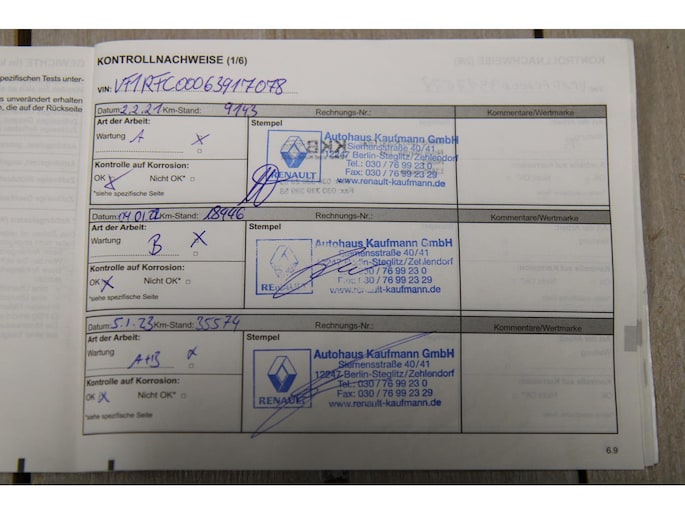 KONTROLLNACHWEISE (1/6)
VIN: VF1RFC00063917078
pezifischen Tests unter-
s unverändert erhalten
, die auf der Rückseite
Datum: 2.2.21 Km-Stand: 9143 Rechnungs-Nr.: Kommentare/Wertmarke
Art der Arbeit: Stempel
Wartung A X
Autohaus Kaufmann GmbH
Siemensstraße 40/41
12247 Berlin-Steglitz/Zehlendorf
Tel.: 030 / 76 99 23 0
Fax: 030 / 76 99 23 29
www.renault-kaufmann.de
RENAULT
Kontrolle auf Korrosion:
OK X Nicht OK*
*siehe spezifische Seite
Datum: 14.01.22 Km-Stand: 18946 Rechnungs-Nr.: Kommentare/Wertmarke
Art der Arbeit: Stempel
Wartung B X
Autohaus Kaufmann GmbH
Siemensstraße 40/41
12247 Berlin-Steglitz/Zehlendorf
Tel.: 030 / 76 99 23 0
Fax: 030 / 76 99 23 29
www.renault-kaufmann.de
RENAULT
Kontrolle auf Korrosion:
OK X Nicht OK*
*siehe spezifische Seite
Datum: 5.1.23 Km-Stand: 35574 Rechnungs-Nr.: Kommentare/Wertmarke
Art der Arbeit: Stempel
Wartung A+B X
Autohaus Kaufmann GmbH
Siemensstraße 40/41
12247 Berlin-Steglitz/Zehlendorf
Tel.: 030 / 76 99 23 0
Fax: 030 / 76 99 23 29
www.renault-kaufmann.de
RENAULT
Kontrolle auf Korrosion:
OK X Nicht OK*
*siehe spezifische Seite
6.9